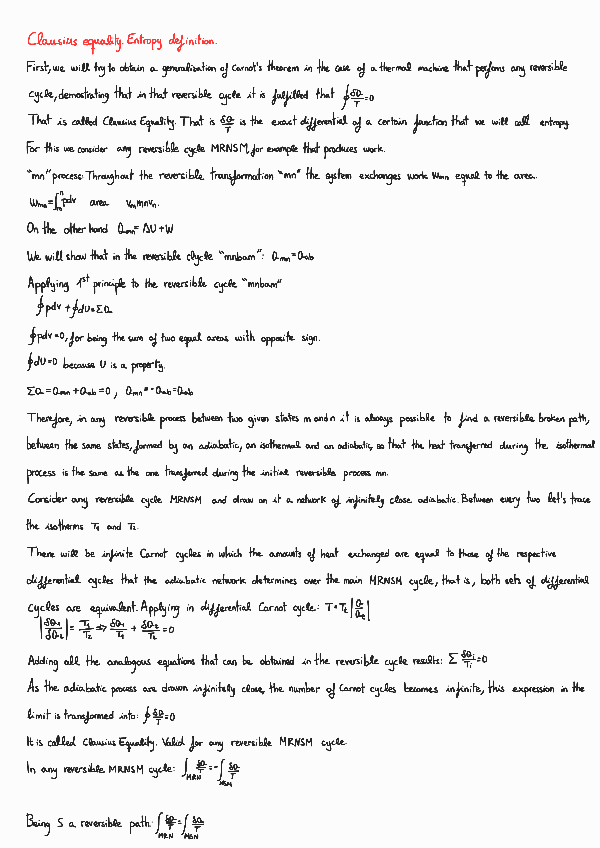 Clausius equality. Entropy definition.
First, we will try to obtain a generalization of Carnot's theorem in the case of a thermal machine that perfoms any reversible
cycle, demostrating that in that reversible cycle it is fulfilled that ∮δQ/T=0
That is called Clausius Equality. That is δQ/T is the exact differential of a certain function that we will call entropy.
For this we consider any reversible cycle MRNSM, for example that produces work.
"mn" process: Throughout the reversible transformation "mn" the system exchanges work Wmn equal to the area.
Wmn=∫ₘⁿpdv area vmmnvn.
On the other hand Qmn=ΔU+W
We will show that in the reversible clycle "mnbam": Qmn=Qab
Applying 1st principle to the reversible cycle "mnbam"
∮pdv+∮dU=ΣQ
∮pdv=0, for being the sum of two equal areas with opposite sign.
∮dU=0 because U is a property.
ΣQ=Qmn+Qab=0, Qmn=-Qab=Qab
Therefore, in any reversible process between two given states m and n it is always possible to find a reversible broken path,
between the same states, formed by an adiabatic, an isothermal and an adiabatic, so that the heat transferred during the isothermal
process is the same as the one transferred during the initial reversible process mn.
Consider any reversible cycle MRNSM and draw on it a network of infinitely close adiabatic. Between every two let's trace
the isotherms T1 and T2.
There will be infinite Carnot cycles in which the amounts of heat exchanged are equal to those of the respective
differential cycles that the adiabatic network determines over the main MRNSM cycle, that is, both sets of differential
cycles are equivalent. Applying in differential Carnot cycle: T=Tt|Q/Qt|
|δQ1/δQ2|=T1/T2=>δQ1/T1+δQ2/T2=0
Adding all the analogous equations that can be obtained in the reversible cycle results: ΣδQi/Ti=0
As the adiabatic process are drawn infinitely close, the number of Carnot cycles becomes infinite, this expression in the
limit is transformed into: ∮δQ/T=0
It is called Clausius Equality. Valid for any reversible MRNSM cycle.
In any reversible MRNSM cycle: ∫MRN δQ/T=-∫NSM δQ/T
Being S a reversible path: ∫MRN δQ/T=∫MSN δQ/T